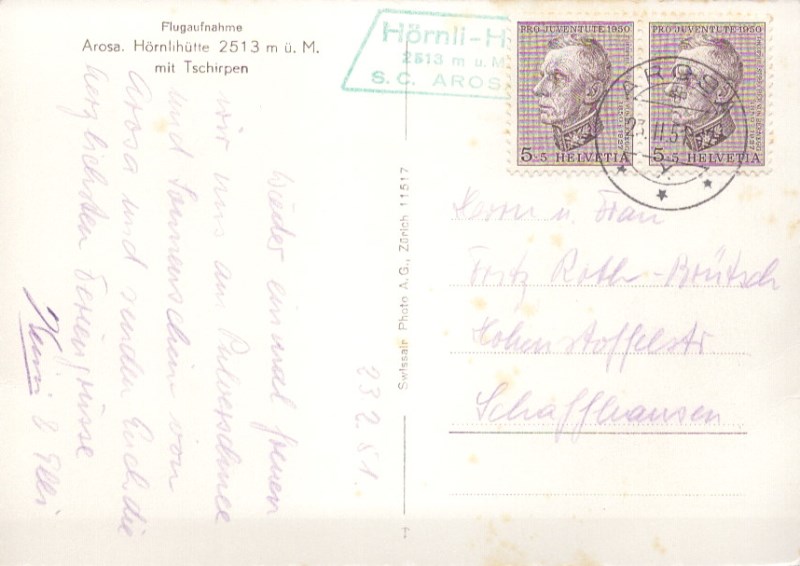 Flugaufnahme
Arosa. Hörnlihütte 2513 m ü. M.
mit Tschirpen
Hörnli-H
2513 m ü. M
S. C. AROS
PRO JUVENTUTE 1950
5+5 HELVETIA
PRO JUVENTUTE 1950
5+5 HELVETIA
AROSA
23.II.51
Wieder einmal freuen
wir uns am Pulverschnee
und Sonnenschein von
Arosa und senden Euch die
herzlichsten Feriengrüsse
& Elli
23.2.51.
Swissair Photo A.G., Zürich 11517
Herrn u. Frau
Fritz Roth-Brütsch
Hohenstoffelstr
Schaffhausen